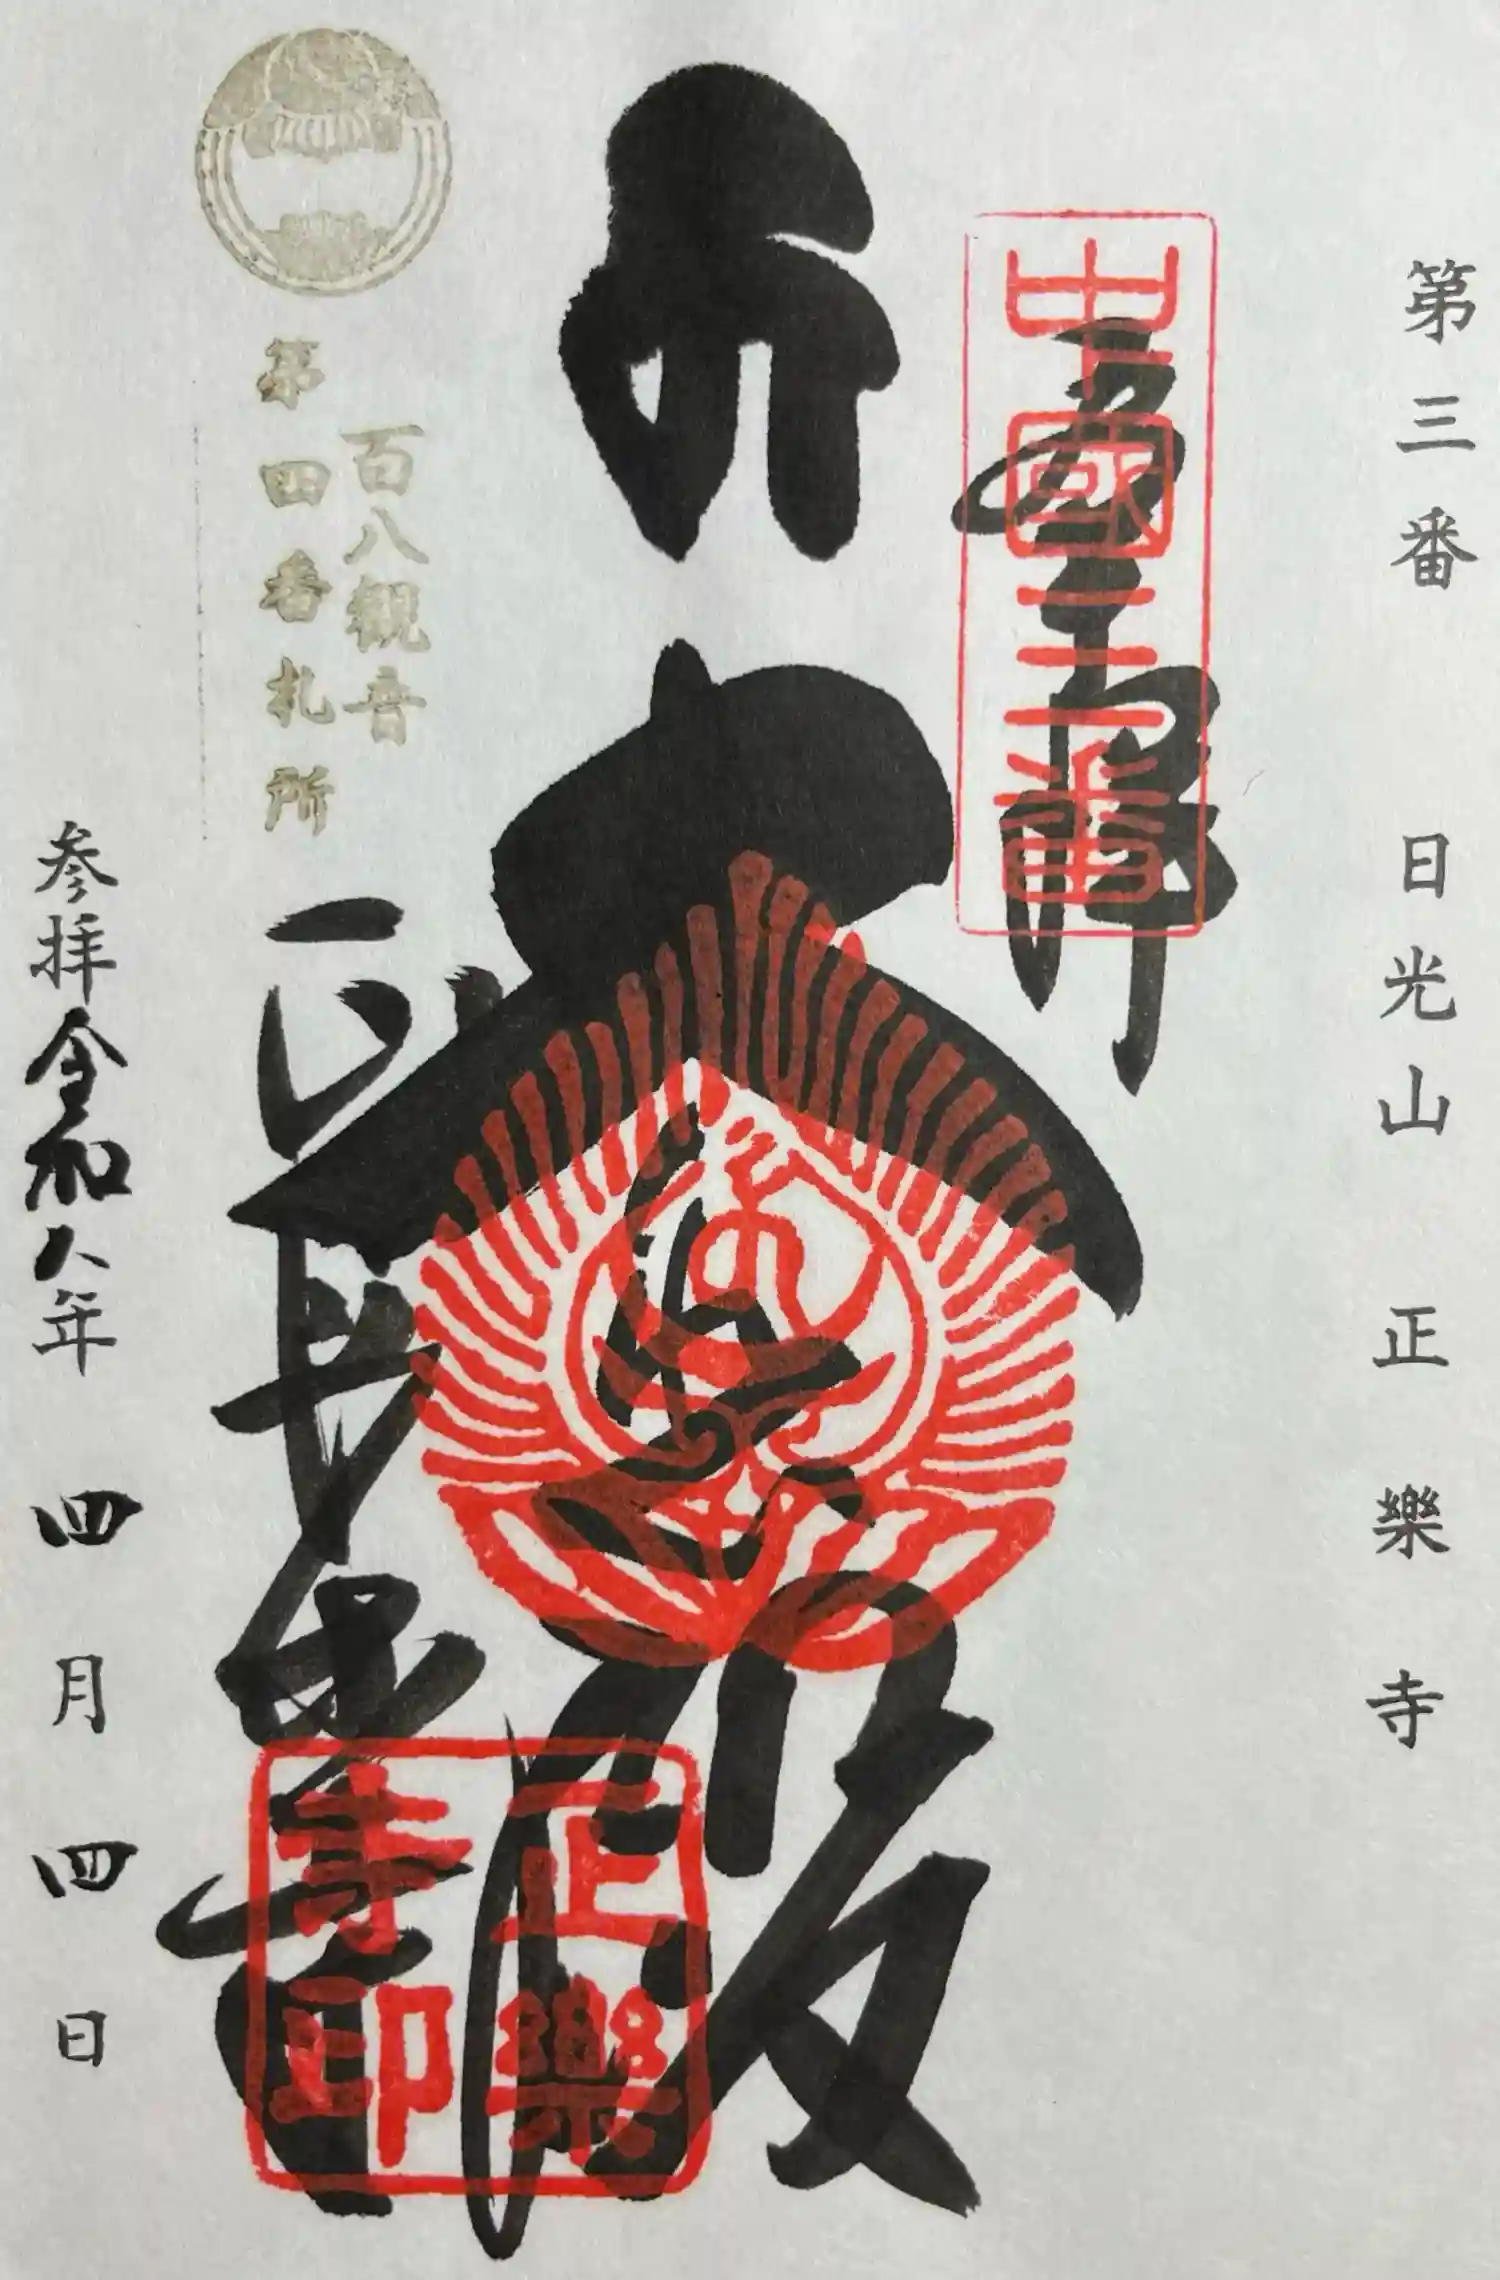 第三番 日光山 正樂寺
奉拝
中國三番
大悲殿
正樂寺
正樂寺印
百八観音
第四番札所
参拝 令和八年 四月 四日